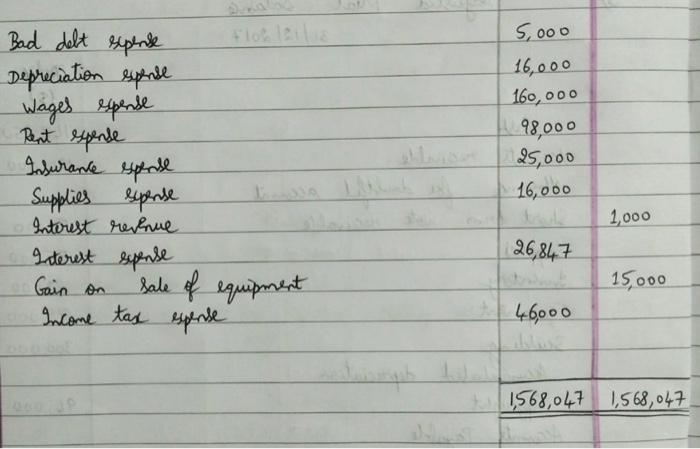 Bad debt expense 5,000
Depreciation expense 16,000
Wages expense 160,000
Rent expense 98,000
Insurance expense 25,000
Supplies expense 16,000
Interest revenue 1,000
Interest expense 26,847
Gain on sale of equipment 15,000
Income tax expense 46,000
1,568,047 1,568,047